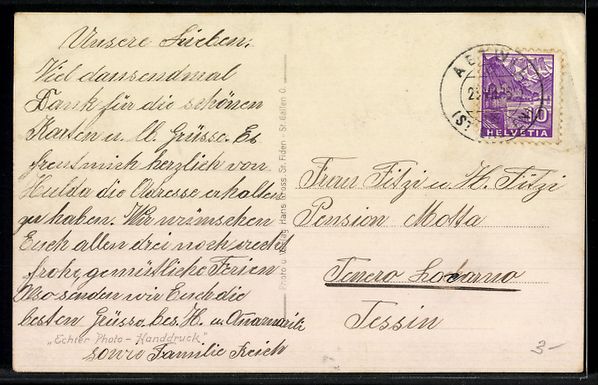 Unsere Lieben.
Viel dausendmal
Dank für die schönen
Karten u. lb. Grüsse. Es
freut mich herzlich von
Hulda die Adresse erhalten
zu haben. Wir wünschen
Euch allen drei noch recht
frohe, gemütliche Ferien
Also senden wir Euch die
besten Grüsse, bes. H. u. Annamarie
"Echter Photo-Handdruck"
sowie Familie
Photo u. Verlag Hans Gross St. Fiden - St. Gallen O.
10
HELVETIA
Frau Fitzi u. H. Fitzi
Pension Motta
Tenero Locarno
Tessin
3-